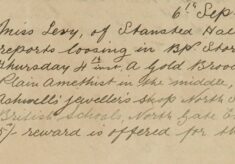 6th Sep
Miss Levy, of Stansted Hal
reports loosing in Bp Stor
Thursday 4th inst. A Gold Brooc
Plain Amethist in the middle,
jewellers shop North S
British Schools, North Gate E
5/- reward is offered for th